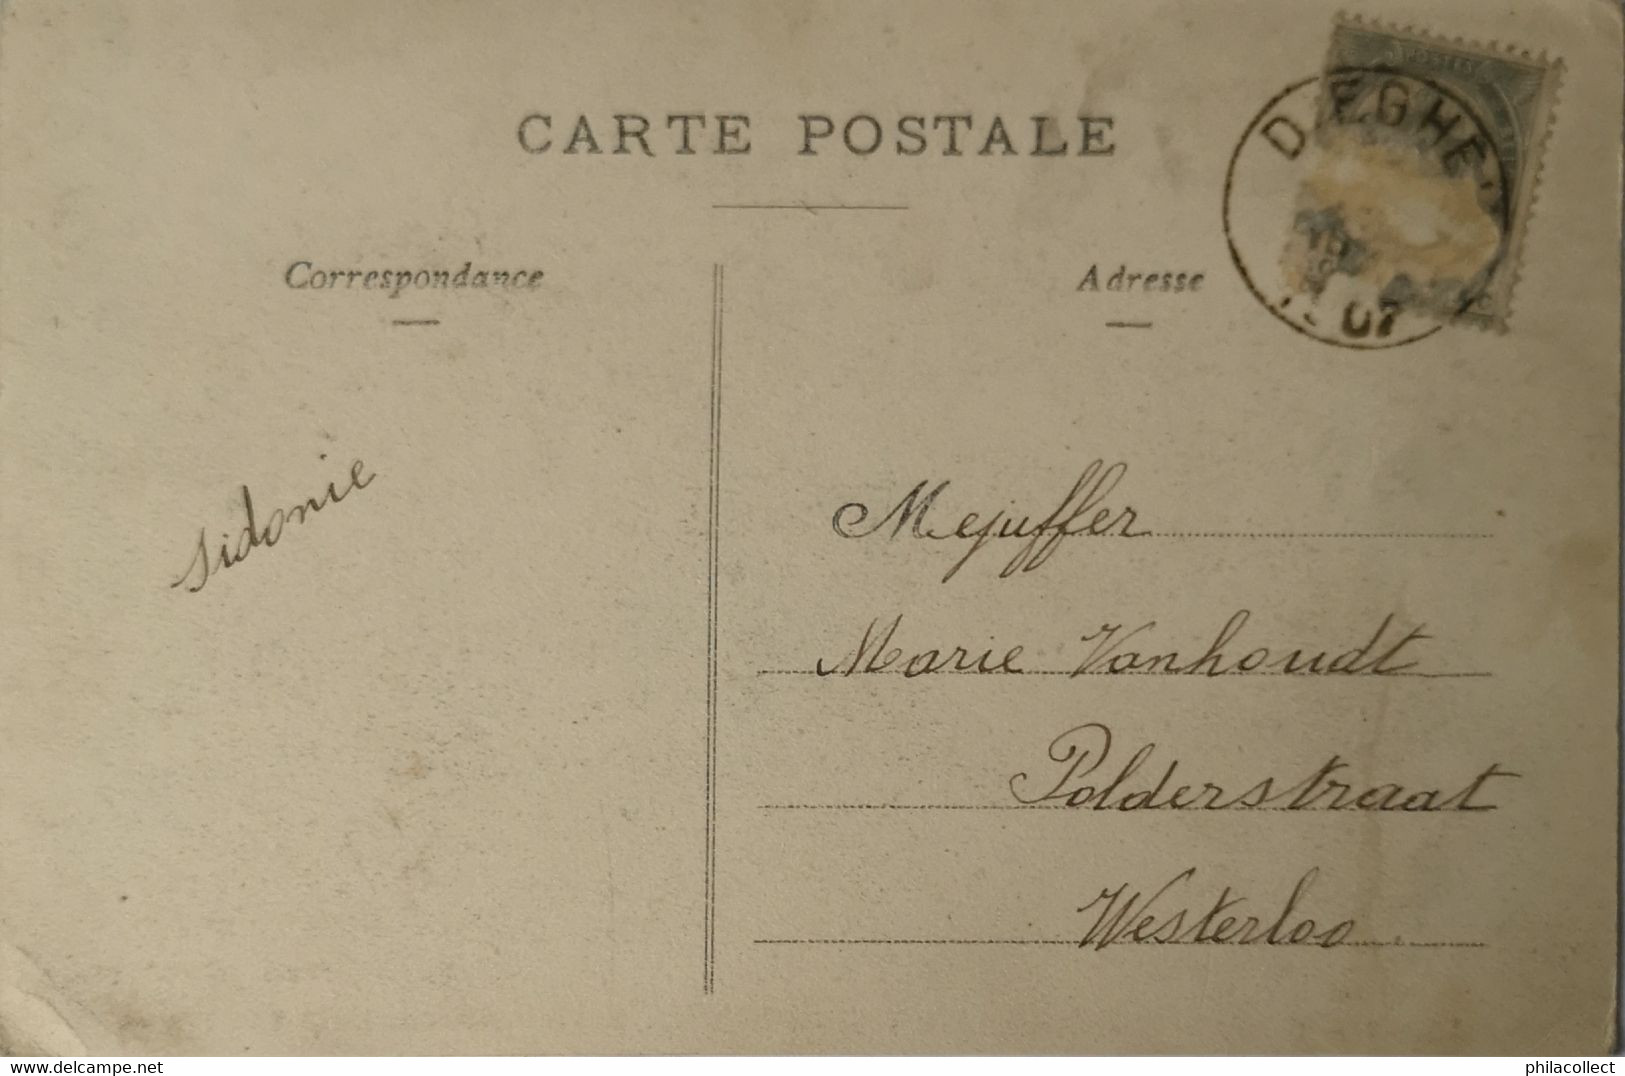 CARTE POSTALE
Correspondance
Adresse
POSTES
DIEGHE
07
Sidonie
Mejuffer
Marie Vanhoudt
Polderstraat
Westerloo
www.delcampe.net
philacollect